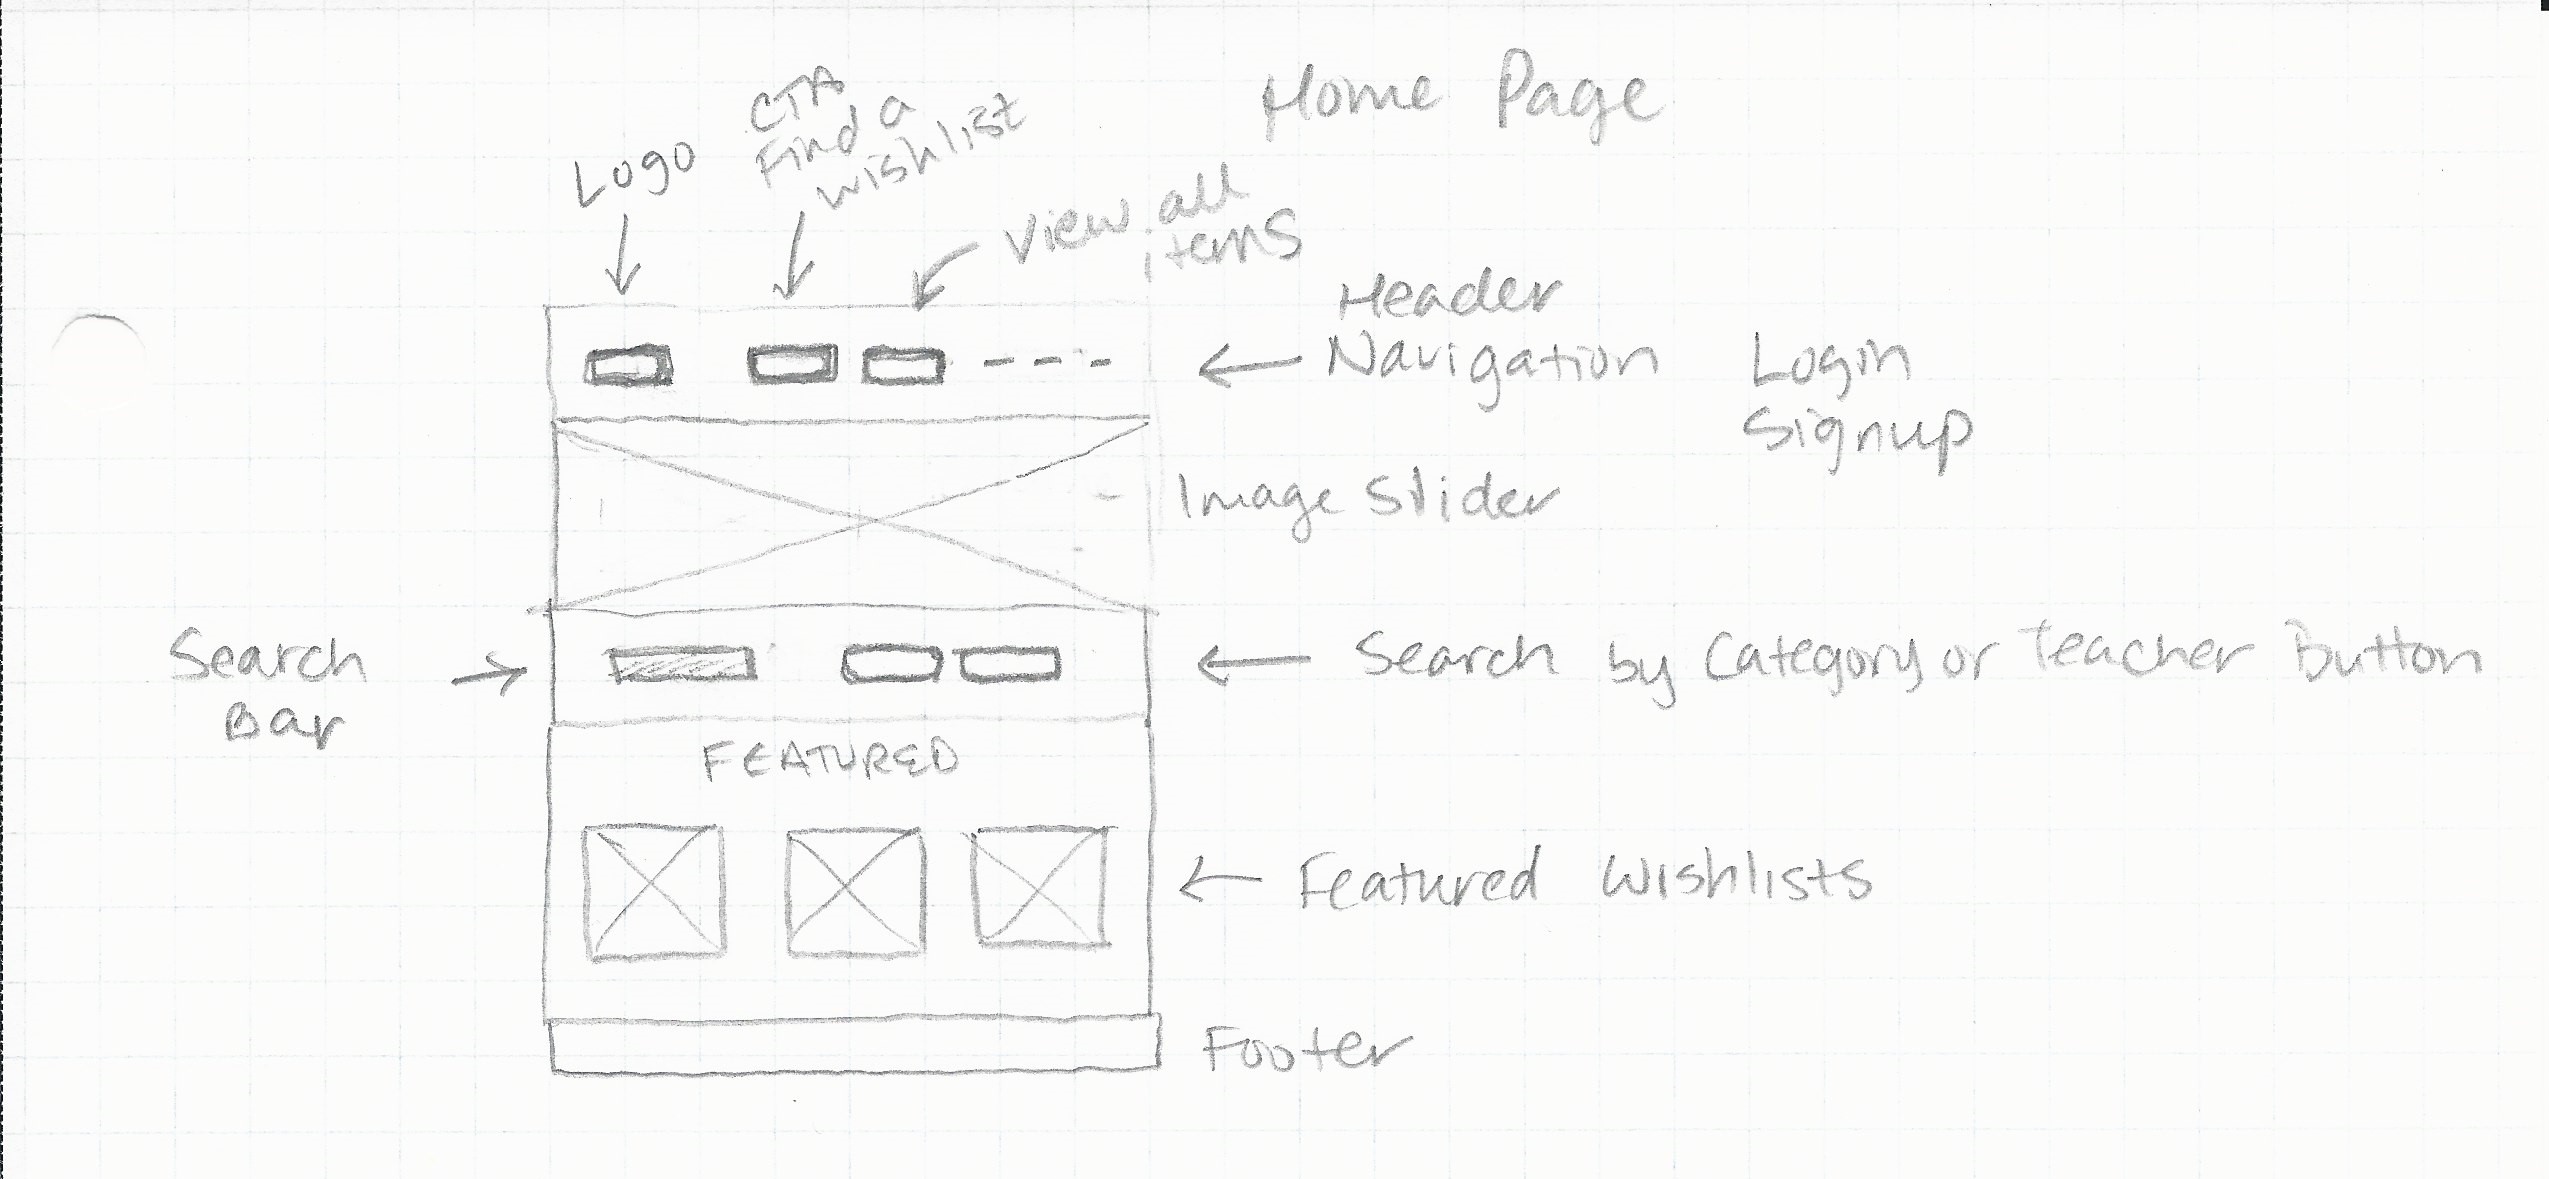 Home Page
Logo
CTA
Find a
wishlist
View all
items
Header
Navigation
Login
Signup
Image Slider
Search
Bar
Search by Category or Teacher Button
FEATURED
Featured Wishlists
Footer